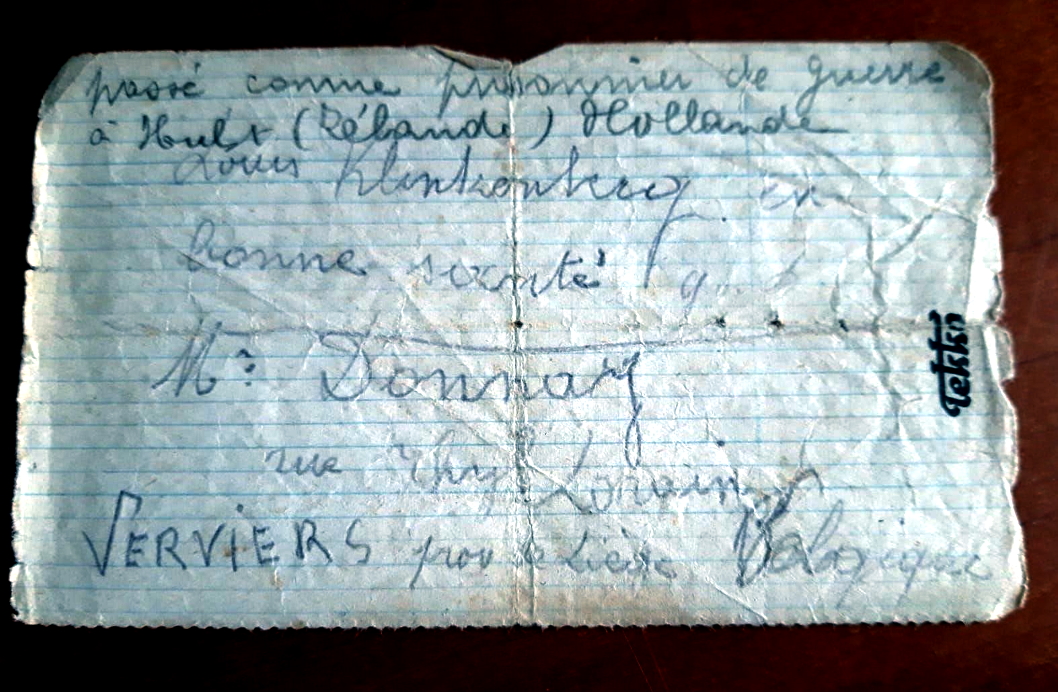 passé comme prisonnier de guerre
à Hulst (Zélande) Hollande
Louis Klinkenberg en
bonne santé
Mr Donnay
rue
VERVIERS prov de Liége Belgique
Tekko